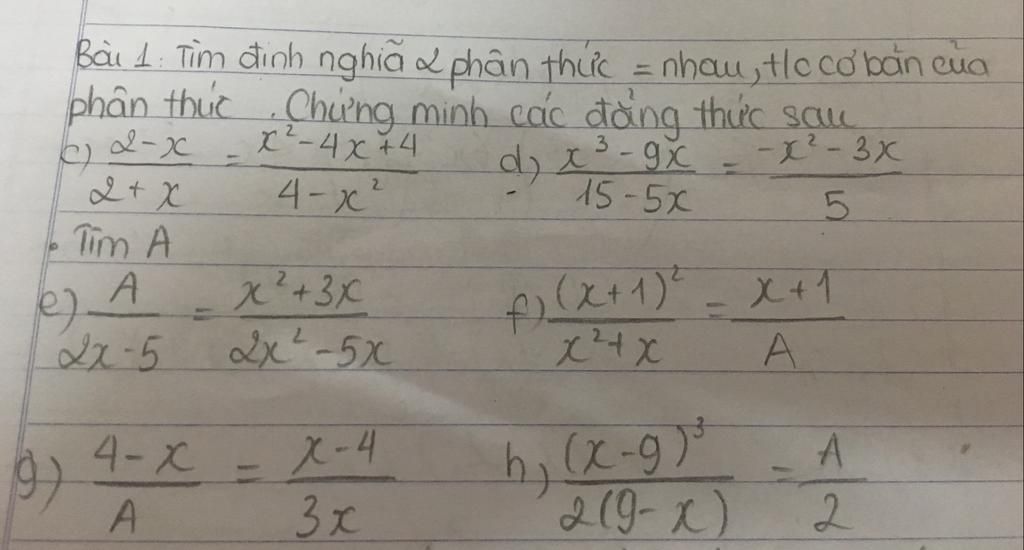 Bài 1: Tìm định nghiã 2 phân thức = nhau, t/c cơ bản của
phân thức. Chứng minh các đẳng thức sau
c) (2-x)/(2+x) = (x²-4x+4)/(4-x²) d) (x³-9x)/(15-5x) = (-x²-3x)/5
• Tìm A
e) A/(2x-5) = (x²+3x)/(2x²-5x) f) (x+1)²/(x²+x) = (x+1)/A
g) (4-x)/A = (x-4)/(3x) h) (x-9)³/(2(9-x)) = A/2